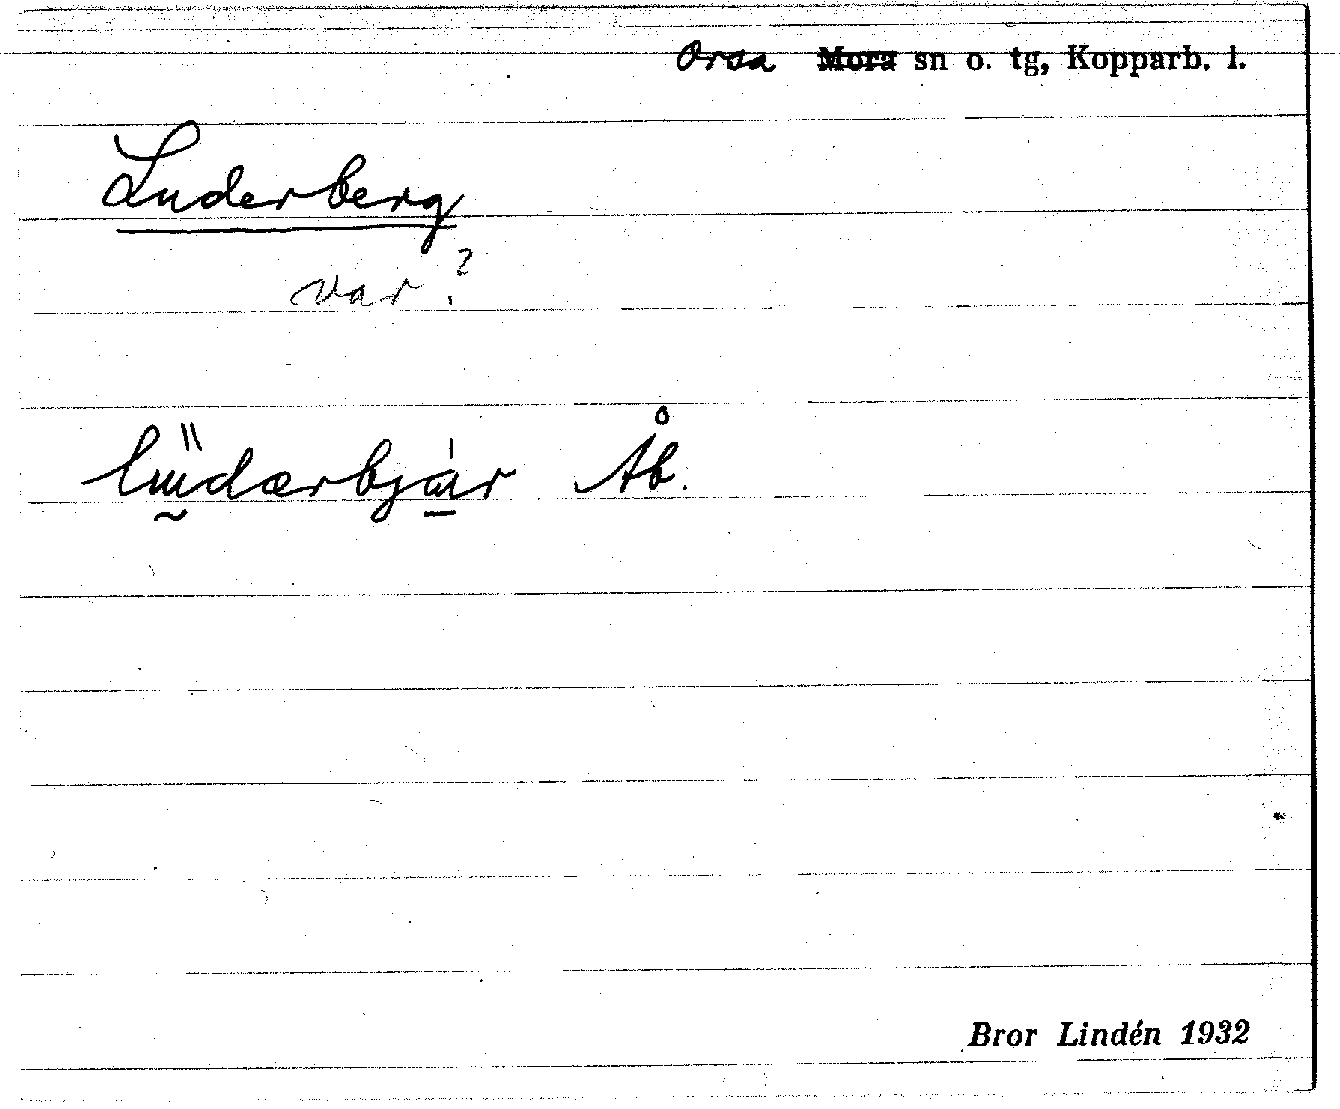 Orsa Mora sn o. tg, Kopparb. l.
Luderberg
var?
lüdærbjár Åb.
Bror Lindén 1932